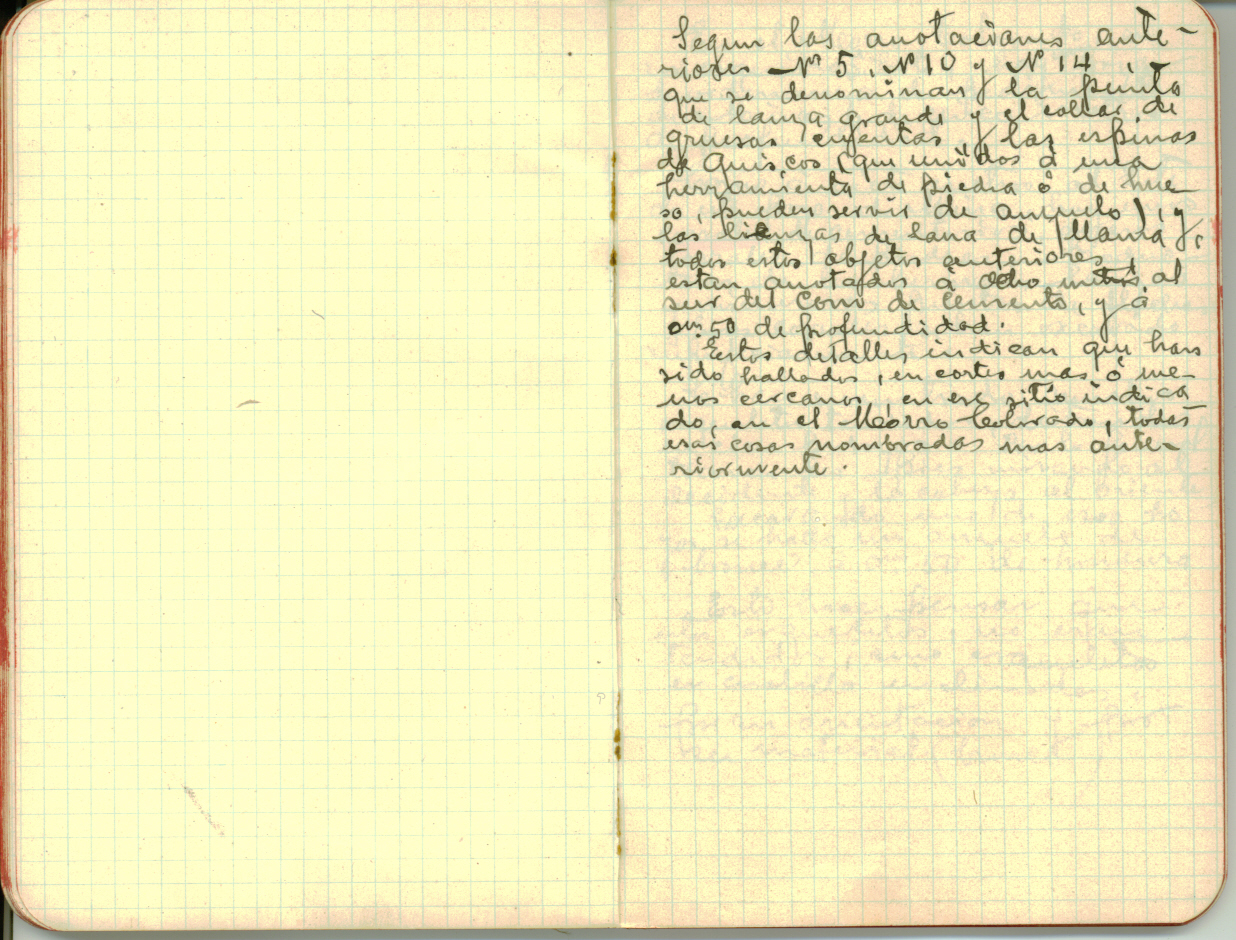 Segun las anotaciones ante-
riores - Nº 5, Nº 10 y Nº 14,
que se denominan la punta
de lanza grande y el collar de
gruesas cuentas, y las espinas
de Quiscos (que unidos á una
herramienta de piedra ó de hue-
so, pueden servir de anzuelo), y
las lienzas de lana de llama,
todos estos objetos anteriores,
estan anotados á ocho metros al
sur del Cono de cemento, y á
0m.50 de profundidad.
Estos detalles indican que han
sido hallados, en cortes mas ó me-
nos cercanos, en ese sitio indica
do, en el Morro Colorado, todas
esas cosas nombradas mas ante-
riormente.